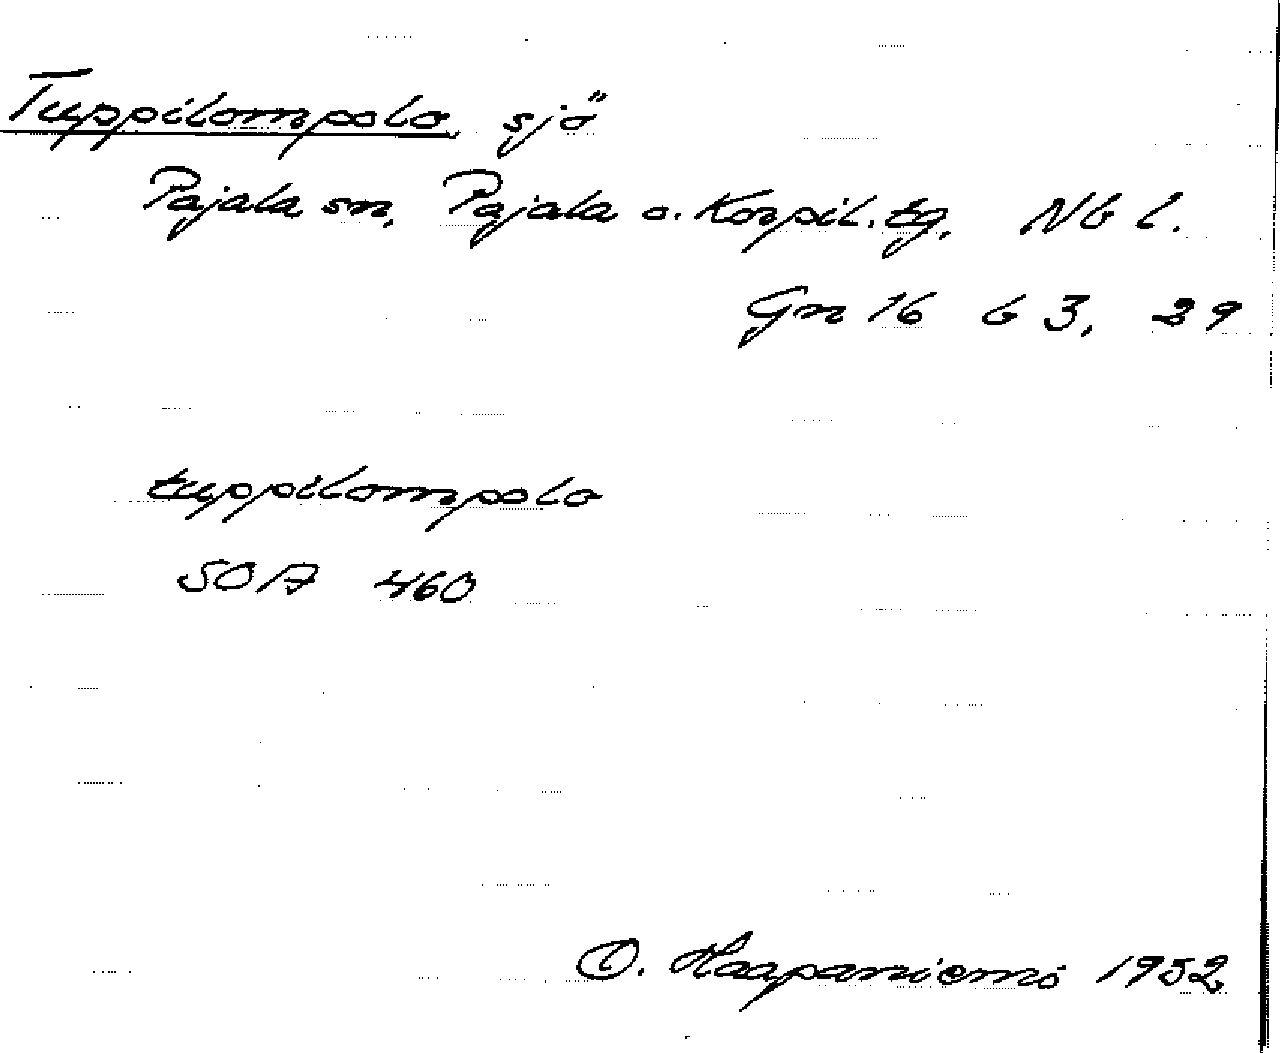 Tuppilompolo sjö
Pajala sn. Pajala o. Korpil. tg. Nb l.
Gn 16 b 3, 29
tuppilompolo
SOA 460
O. Haapaniemi 1952